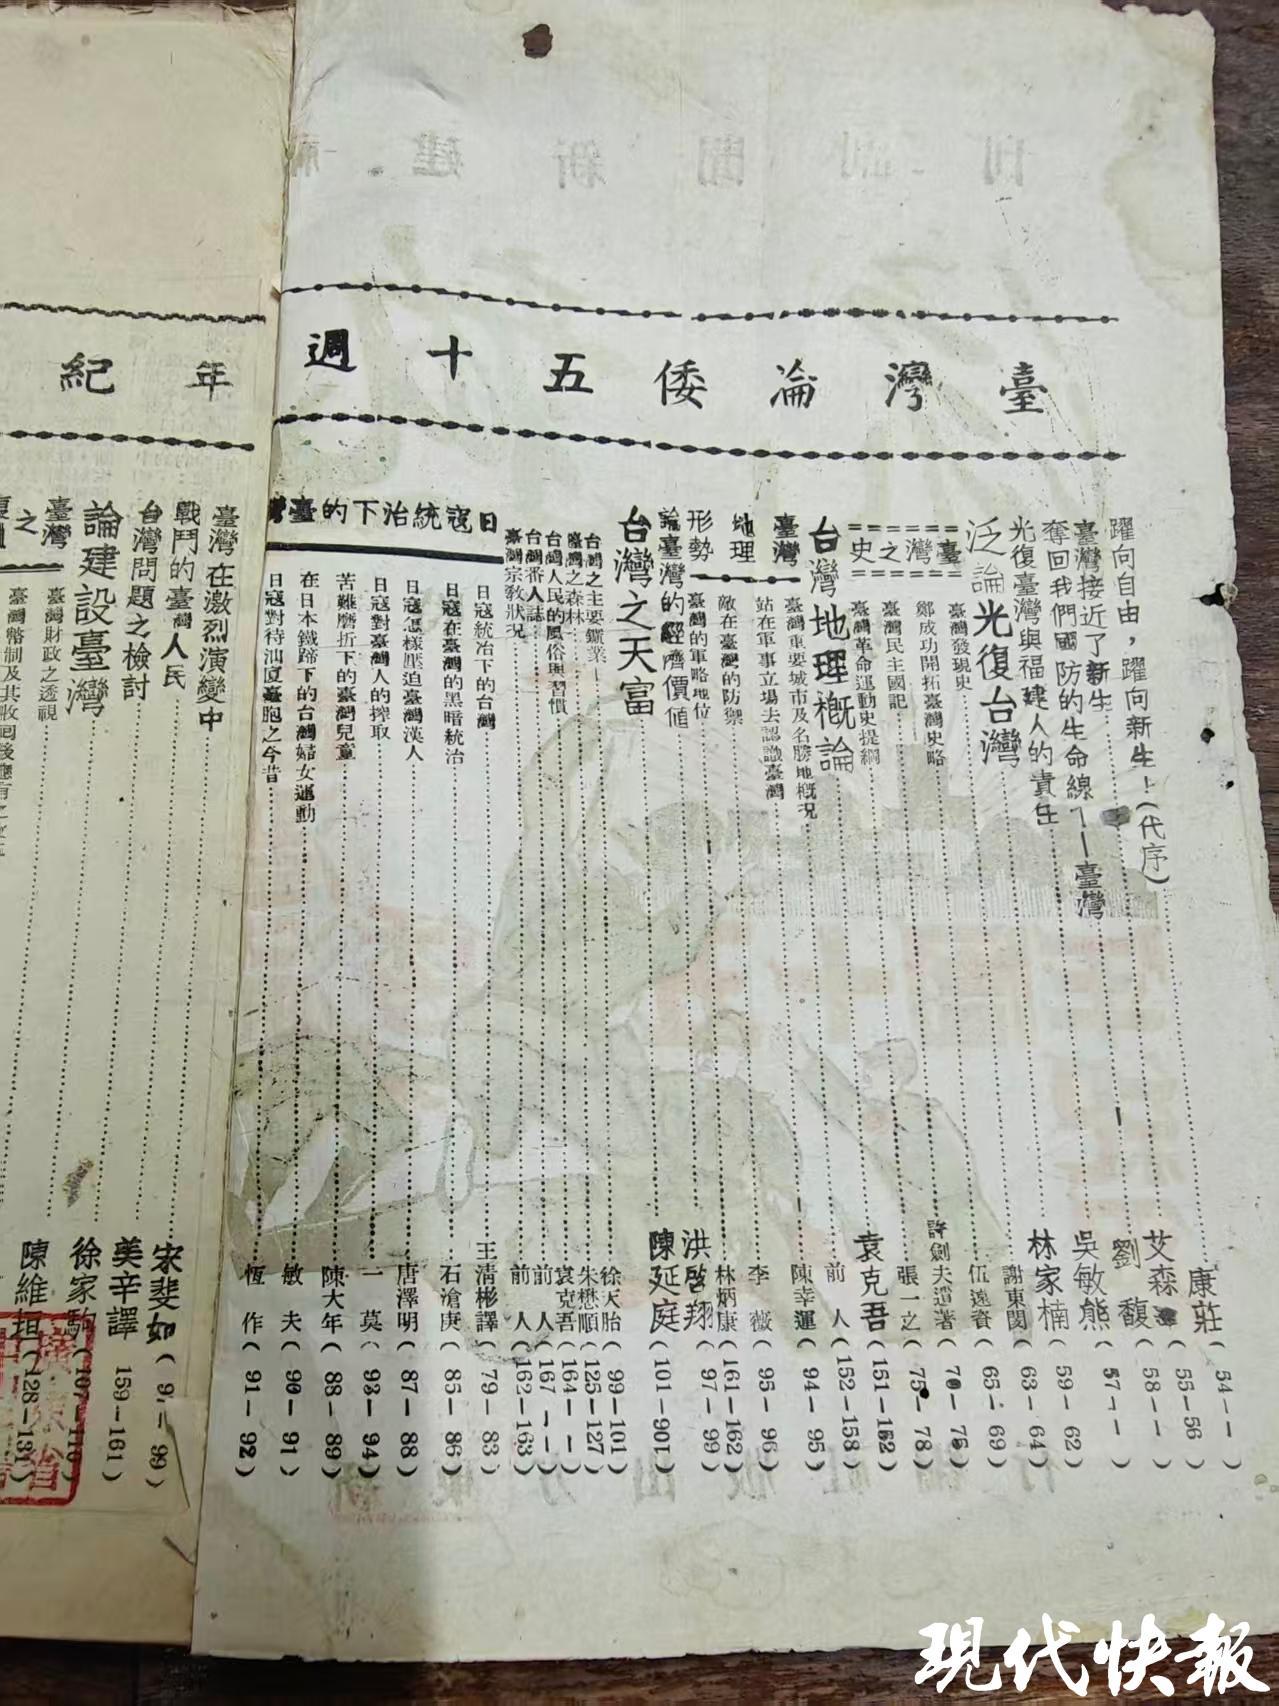 臺灣淪倭五十週年紀
躍向自由，躍向新生！(代序)……康莊(54——)
臺灣接近了新生……艾森(55—56)
奪回我們國防的生命線——臺灣……劉馥(58——)
光復臺灣與福建人的責任……吳敏熊(57——)
泛論光復台灣……林家楠(59—62)
臺灣之史
臺灣發現史……謝東閔(63—64)
鄭成功開拓臺灣史略……伍遠資(65—69)
臺灣民主國記……許劍夫遺著(70—75)
臺灣革命運動史提綱……張一之(75—78)
台灣地理概論……袁克吾(151—152)
臺灣地理形勢
臺灣重要城市及名勝地概況……前人(152—158)
站在軍事立場去認識臺灣……陳幸運(94—95)
敵在臺灣的防禦……李薇(95—96)
臺灣的軍略地位……林炳康(161—162)
論臺灣的經濟價值……洪啓翔(97—99)
台灣之天富……陳延庭(101—901)
台灣之主要鑛業……徐天胎(99—101)
臺灣之森林……朱懋順(125—127)
台灣人民的風俗與習慣……袁克吾(164——)
台灣番人誌……前人(167——)
臺灣宗教狀況……前人(162—163)
日寇統治下的臺灣
日寇統治下的台灣……王清彬譯(79—83)
日寇在臺灣的黑暗統治……石滄庚(85—86)
日寇怎樣壓迫臺灣漢人……唐澤明(87—88)
日寇對臺灣人的搾取……一莫(93—94)
苦難磨折下的臺灣兒童……陳大年(88—89)
在日本鐵蹄下的台灣婦女運動……敏夫(90—91)
日寇對待汕厦臺胞之今昔……恆作(91—92)
臺灣在激烈演變中
戰鬥的臺灣人民……宋斐如(9—99)
台灣問題之檢討……美辛譯 159—161)
論建設臺灣……徐家駒(107—110)
臺灣之
臺灣財政之透視……陳維垣(128—131)
臺灣幣制及其收回後應有之
现代快报